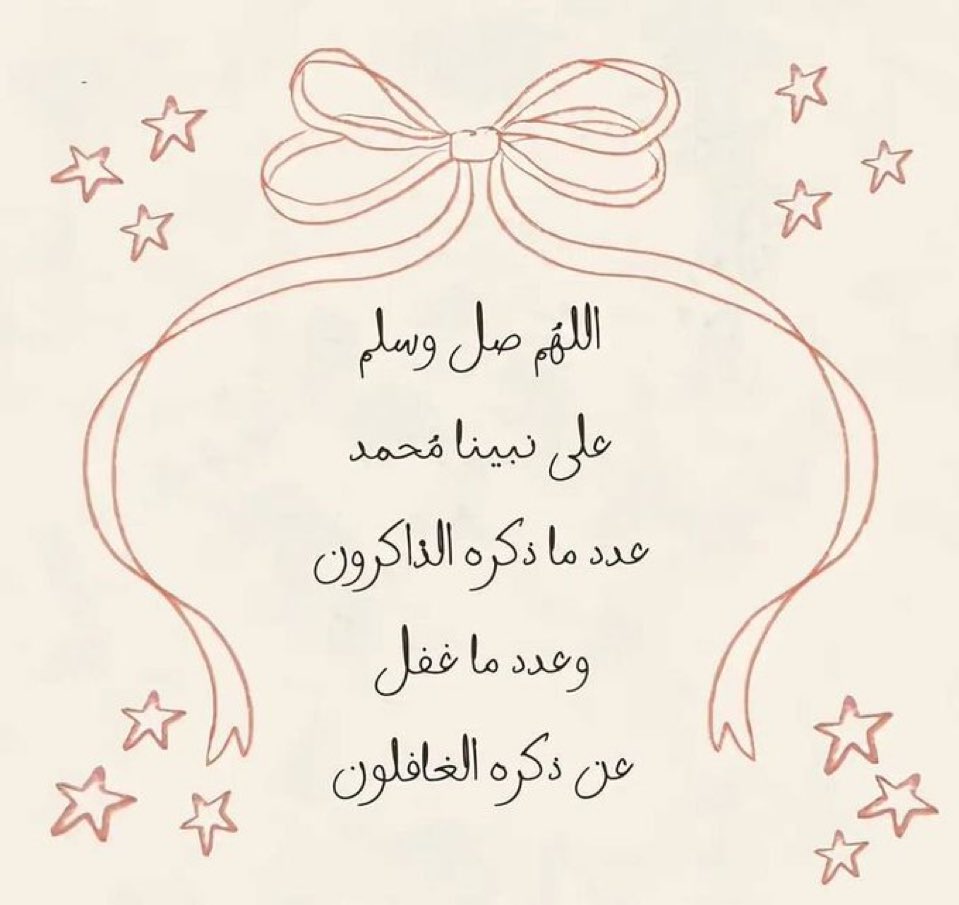 اللهُم صل وسلم
على نبينا مُحمد
عدد ما ذكره الذاكرون
وعدد ما غفل
عن ذكره الغافلون